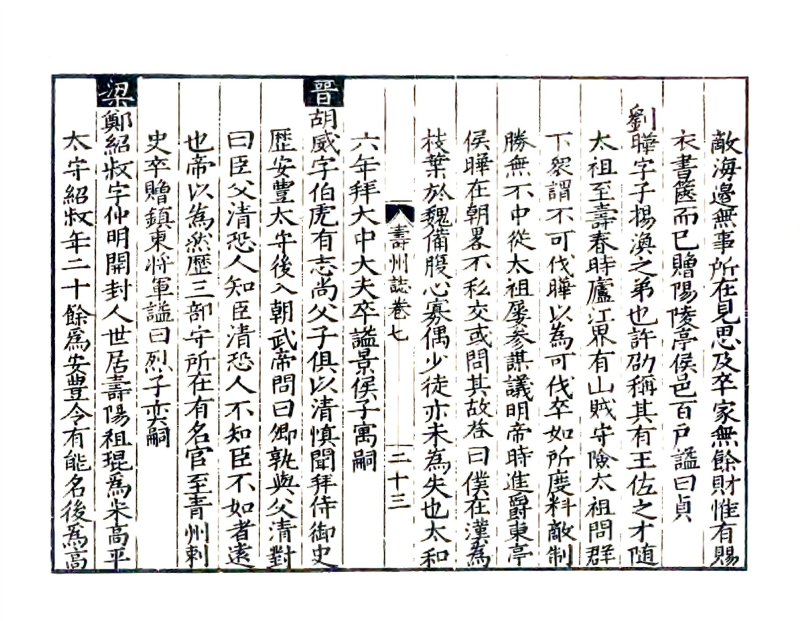 敵海邊無事所在見思及卒家無餘財惟有賜
衣書篋而已贈陽陵亭侯邑百户謚曰貞
劉曄字子楊渙之弟也許劭稱其有王佐之才随
太祖至壽春時廬江界有山賊守險太祖問群
下衆謂不可伐曄以為可伐卒如所度料敵制
勝無不中從太祖屡參謀議明帝時進爵東亭
侯曄在朝畧不私交或問其故荅曰僕在漢為
枝葉於魏備腹心寡偶少徒亦未為失也太和
壽州誌卷七
二十三
六年拜大中大夫卒謚景侯子寓嗣
晉胡威字伯虎有志尚父子俱以清慎聞拜侍御史
歷安豊太守後入朝武帝問曰卿孰與父清對
曰臣父清恐人知臣清恐人不知臣不如者遠
也帝以為然歷三部守所在有名官至青州刺
史卒贈鎮東将軍謚曰烈子奕嗣
梁鄭紹叔字仲明開封人世居壽陽祖琨為宋高平
太守紹叔年二十餘為安豊令有能名後為高